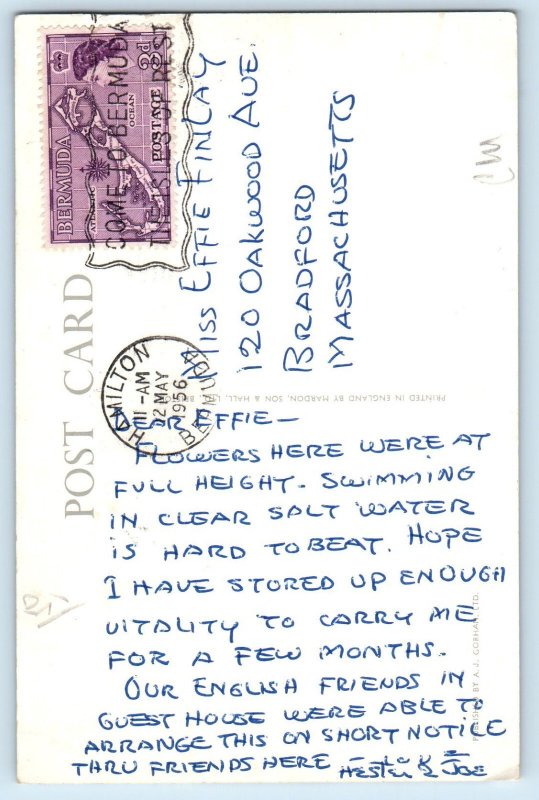 BERMUDA
3d
POSTAGE
OCEAN
ATLANTIC
COME TO BERMUDA
THE ISLES OF REST
POST CARD
HAMILTON
11-AM
12 MAY
1956
BERMUDA
MISS EFFIE FINLAY
120 OAKWOOD AVE.
BRADFORD
MASSACHUSETTS
PRINTED IN ENGLAND BY MARDON, SON & HALL, LTD.
DEAR EFFIE—
FLOWERS HERE WERE AT
FULL HEIGHT. SWIMMING
IN CLEAR SALT WATER
IS HARD TO BEAT. HOPE
I HAVE STORED UP ENOUGH
VITALITY TO CARRY ME
FOR A FEW MONTHS.
OUR ENGLISH FRIENDS IN
GUEST HOUSE WERE ABLE TO
ARRANGE THIS ON SHORT NOTICE
THRU FRIENDS HERE — LOVE
HESTER & JOE
BY A. J. GORHAM, LTD.